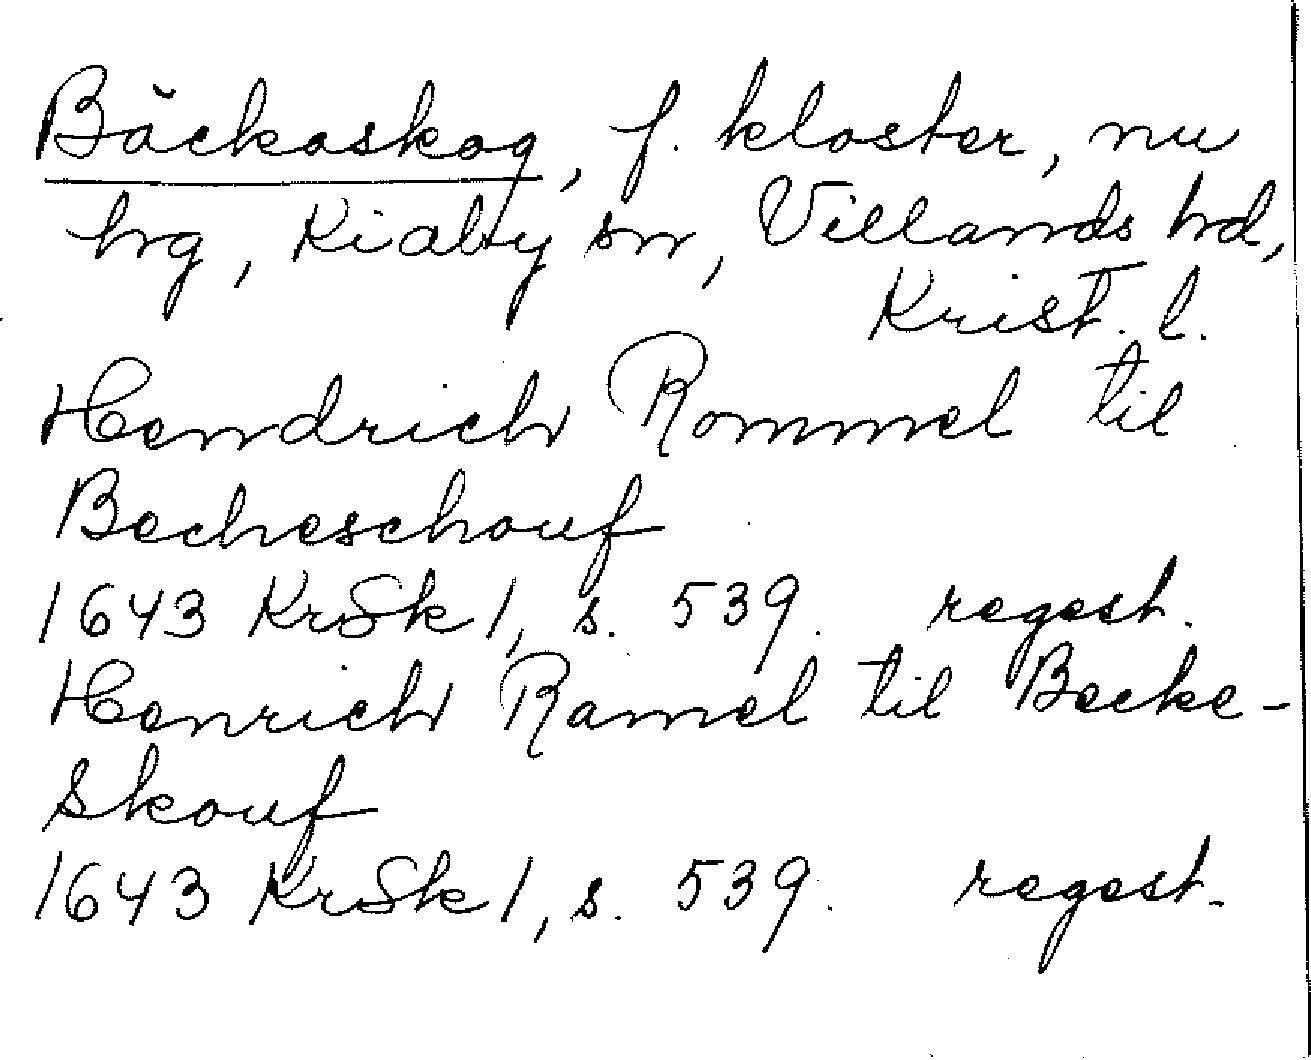 Bäckaskog, f. kloster, nu
hg, Kiaby sn, Villands hd,
Krist. l.
Hendrich Rommel til
Becheschouf
1643 KrSk 1, s. 539. regest.
Henrich Ramel til Becke-
Skouf
1643 KrSk 1, s. 539. regest.